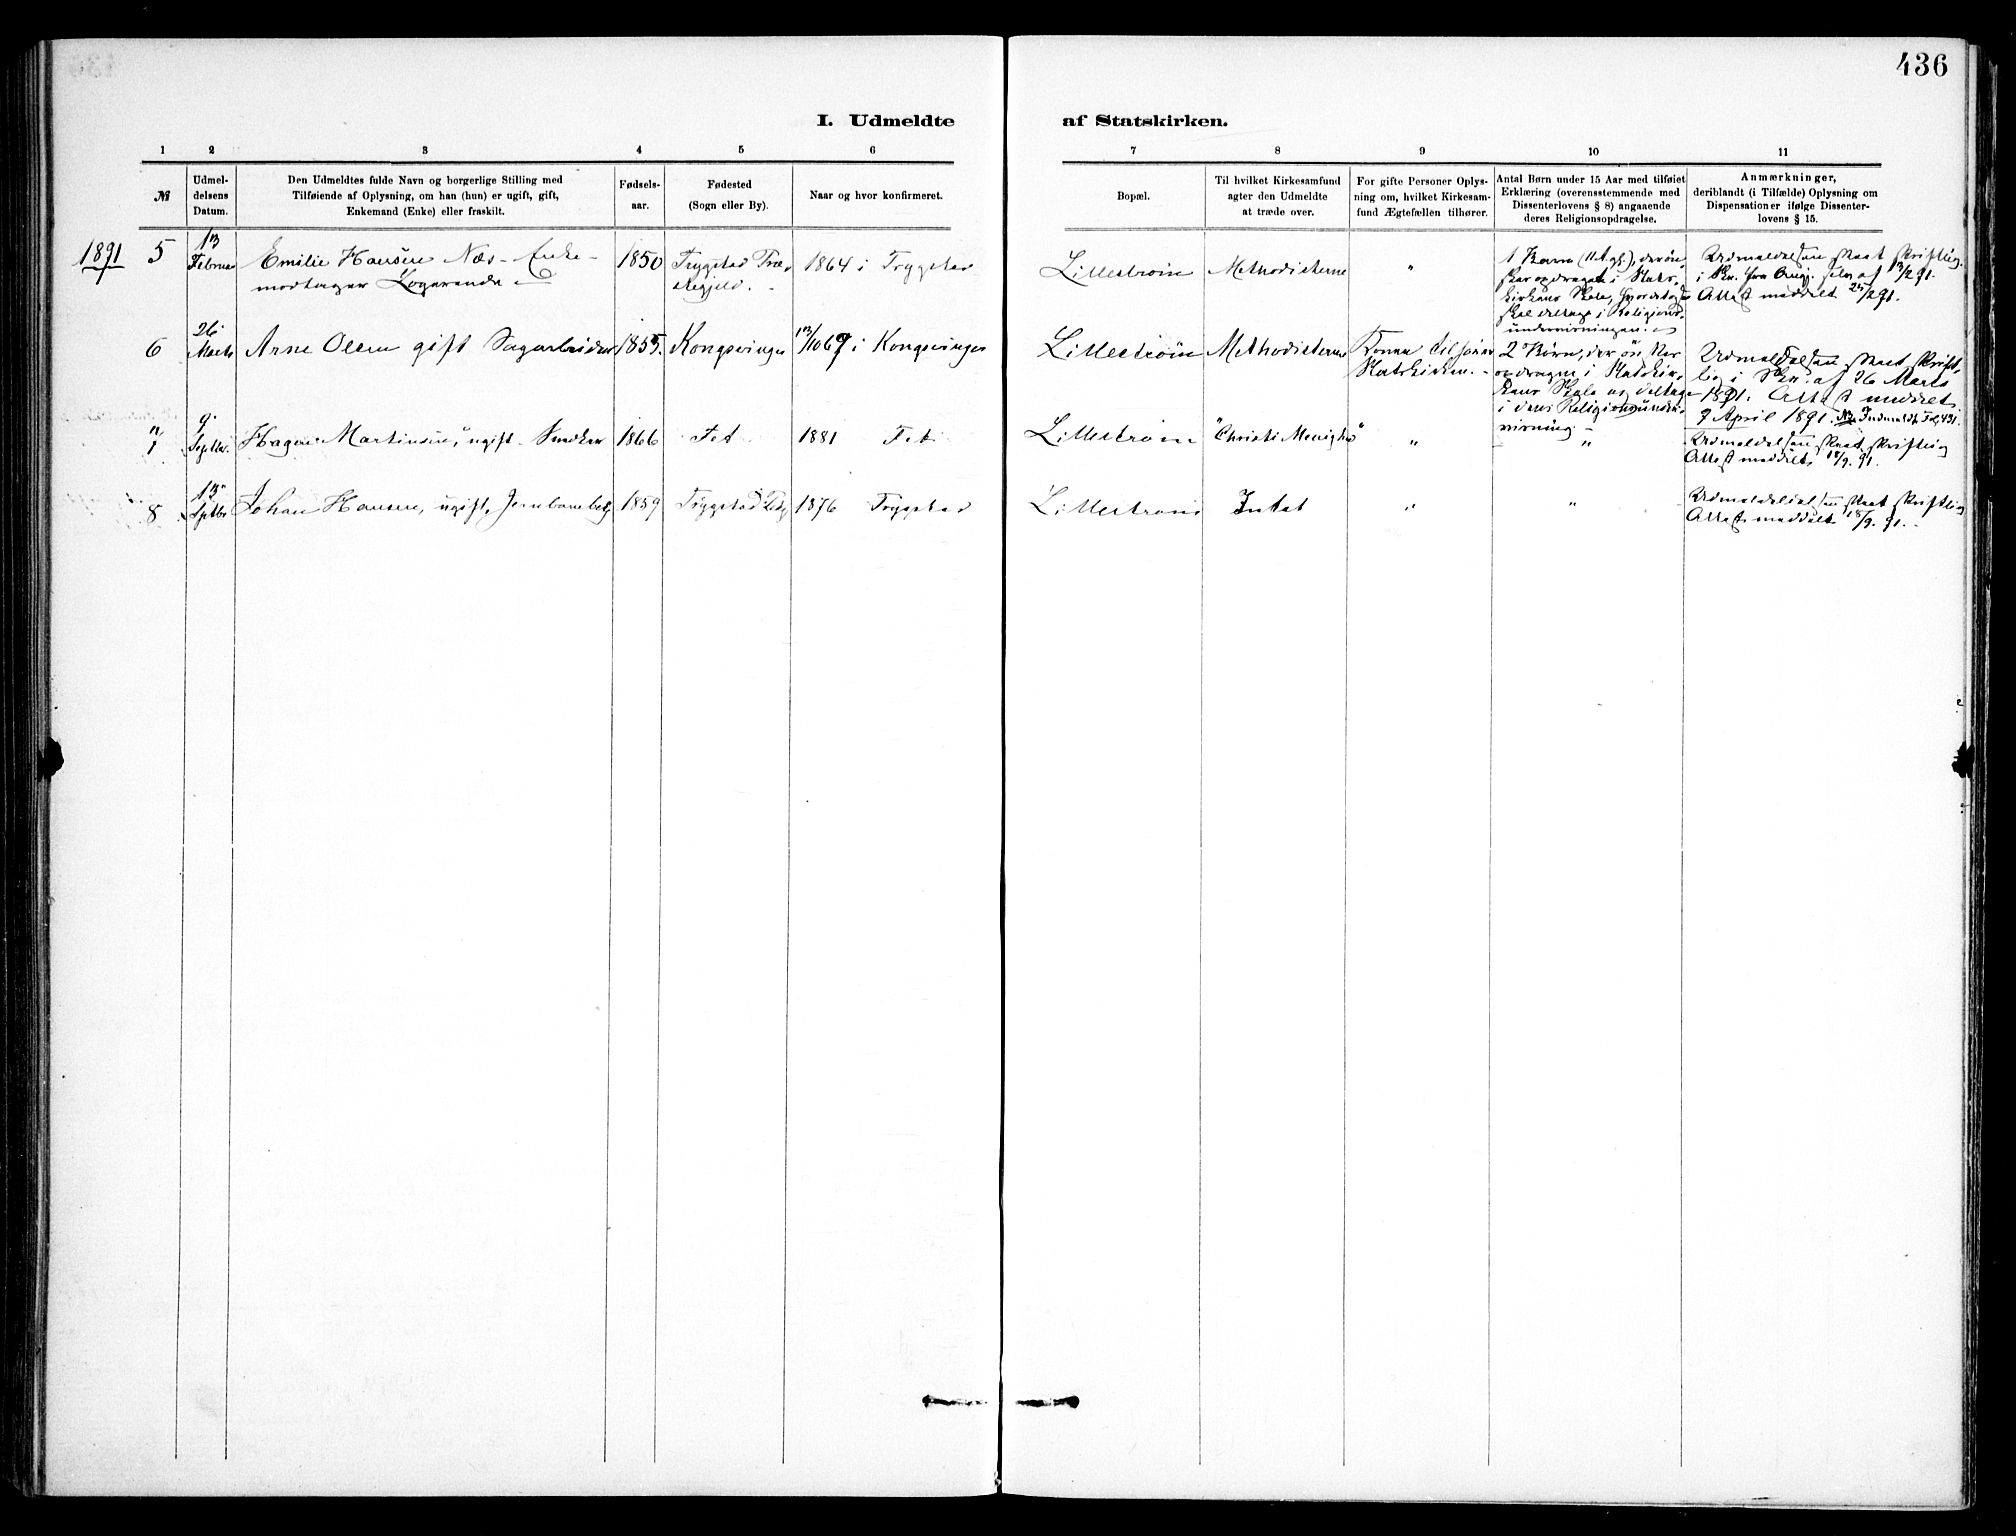 436
I. Udmeldte af Statskirken.
1 2 3 4 5 6 7 8 9 10 11
№
Udmel-
delsens
Datum.
Den Udmeldtes fulde Navn og borgerlige Stilling med
Tilføiende af Oplysning, om han (hun) er ugift, gift,
Enkemand (Enke) eller fraskilt.
Fødsels-
aar.
Fødested
(Sogn eller By).
Naar og hvor konfirmeret.
Bopæl.
Til hvilket Kirkesamfund
agter den Udmeldte
at træde over.
For gifte Personer Oplys-
ning om, hvilket Kirkesam-
fund Ægtefællen tilhører.
Antal Børn under 15 Aar med tilføiet
Erklæring (overensstemmende med
Dissenterlovens § 8) angaaende
deres Religionsopdragelse.
Anmærkninger,
deriblandt (i Tilfælde) Oplysning om
Dispensationer ifølge Dissenter-
lovens § 15.
1891
5
13
Februar
Emilie Hansen Næs - Enke -
modtager Logerende
1850
Trygstad Præ-
stegjeld.
1864 i Trygstad
Lillestrøm
Methodisterne
"
1 Barn (11 A. gl.), der øn-
sker opdraget i Stats-
kirkens Skole,
skal deltage i Religions-
undervisningen.
Udmeldelsen skeet skriftlig
i Skr. fra af 13/2 91.
Attest meddelt 25/2 91.
6
26
Marts
Arne Olsen gift Sagarbeider
1855.
Kongsvinger
13/10 69 i Kongsvinger
Lillestrøm
Methodisterne
Konen tilhører
Statskirken. -
2 Børn, der ønsker
opdragen i Statskir-
kens Skole og deltage
i dens Religionsunder-
visning -
Udmeldelsen skeet skrift-
lig i Skr. af 26 Marts
1891. Attest meddelt
9 April 1891. Indmeldt Fol. 431.
7
9
Septbr.
Hagen Martinsen, ugift - Snedker
1866
Fet
1881 Fet
Lillestrøm
"Christi Menighed"
"
"
Udmeldelsen skeet skriftlig
Attest meddelt 18/9. 91.
8
13
Septbr
Johan Hansen, ugift, Jernbanebetj.
1859
Trygstad
1876 Trygstad
Lillestrøm
Intet
"
"
Udmeldelsen skeet skriftlig
Attest meddelt 18/9. 91. -